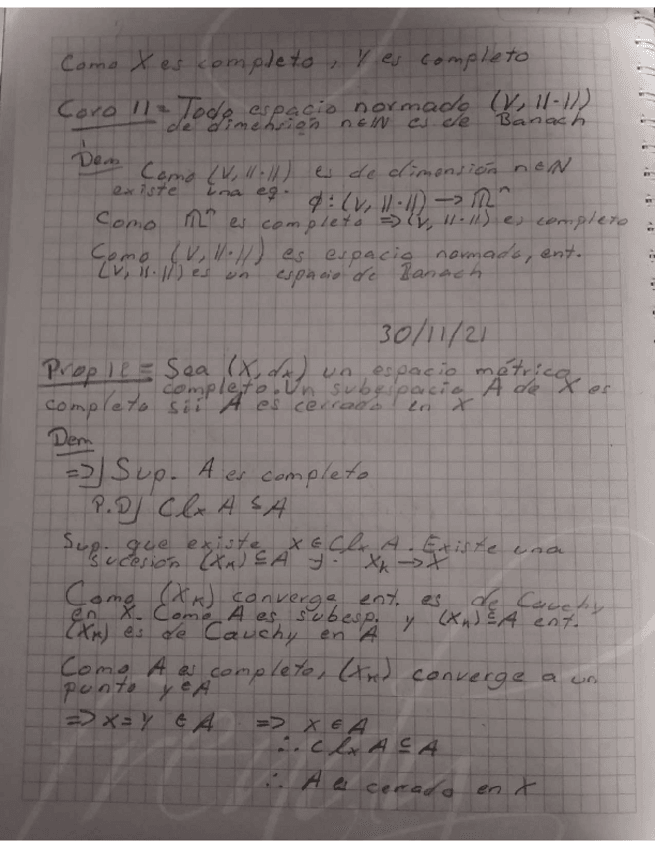 Como X es completo, Y es completo
Coro 11= Todo espacio normado (V, ||·||)
de dimensión n∈ℕ es de Banach
Dem
Como (V, ||·||) es de dimensión n∈ℕ
existe una eq.
φ: (V, ||·||) → ℝⁿ
Como ℝⁿ es completo => (V, ||·||) es completo
Como (V, ||·||) es espacio normado, ent.
(V, ||·||) es un espacio de Banach
30/11/21
Prop 12= Sea (X, dₓ) un espacio métrico
completo. Un subespacio A de X es
completo sii A es cerrado en X
Dem
=>] Sup. A es completo
P.D] Clₓ A ⊆ A
Sup. que existe x ∈ Clₓ A. Existe una
sucesión (xₖ) ⊆ A y. xₖ → x
Como (xₖ) converge ent. es de Cauchy
en X. Como A es subesp. y (xₖ) ⊆ A ent.
(xₖ) es de Cauchy en A
Como A es completo, (xₖ) converge a un
punto y∈A
=> x=y ∈ A => x ∈ A
∴ Clₓ A ⊆ A
∴ A es cerrado en X